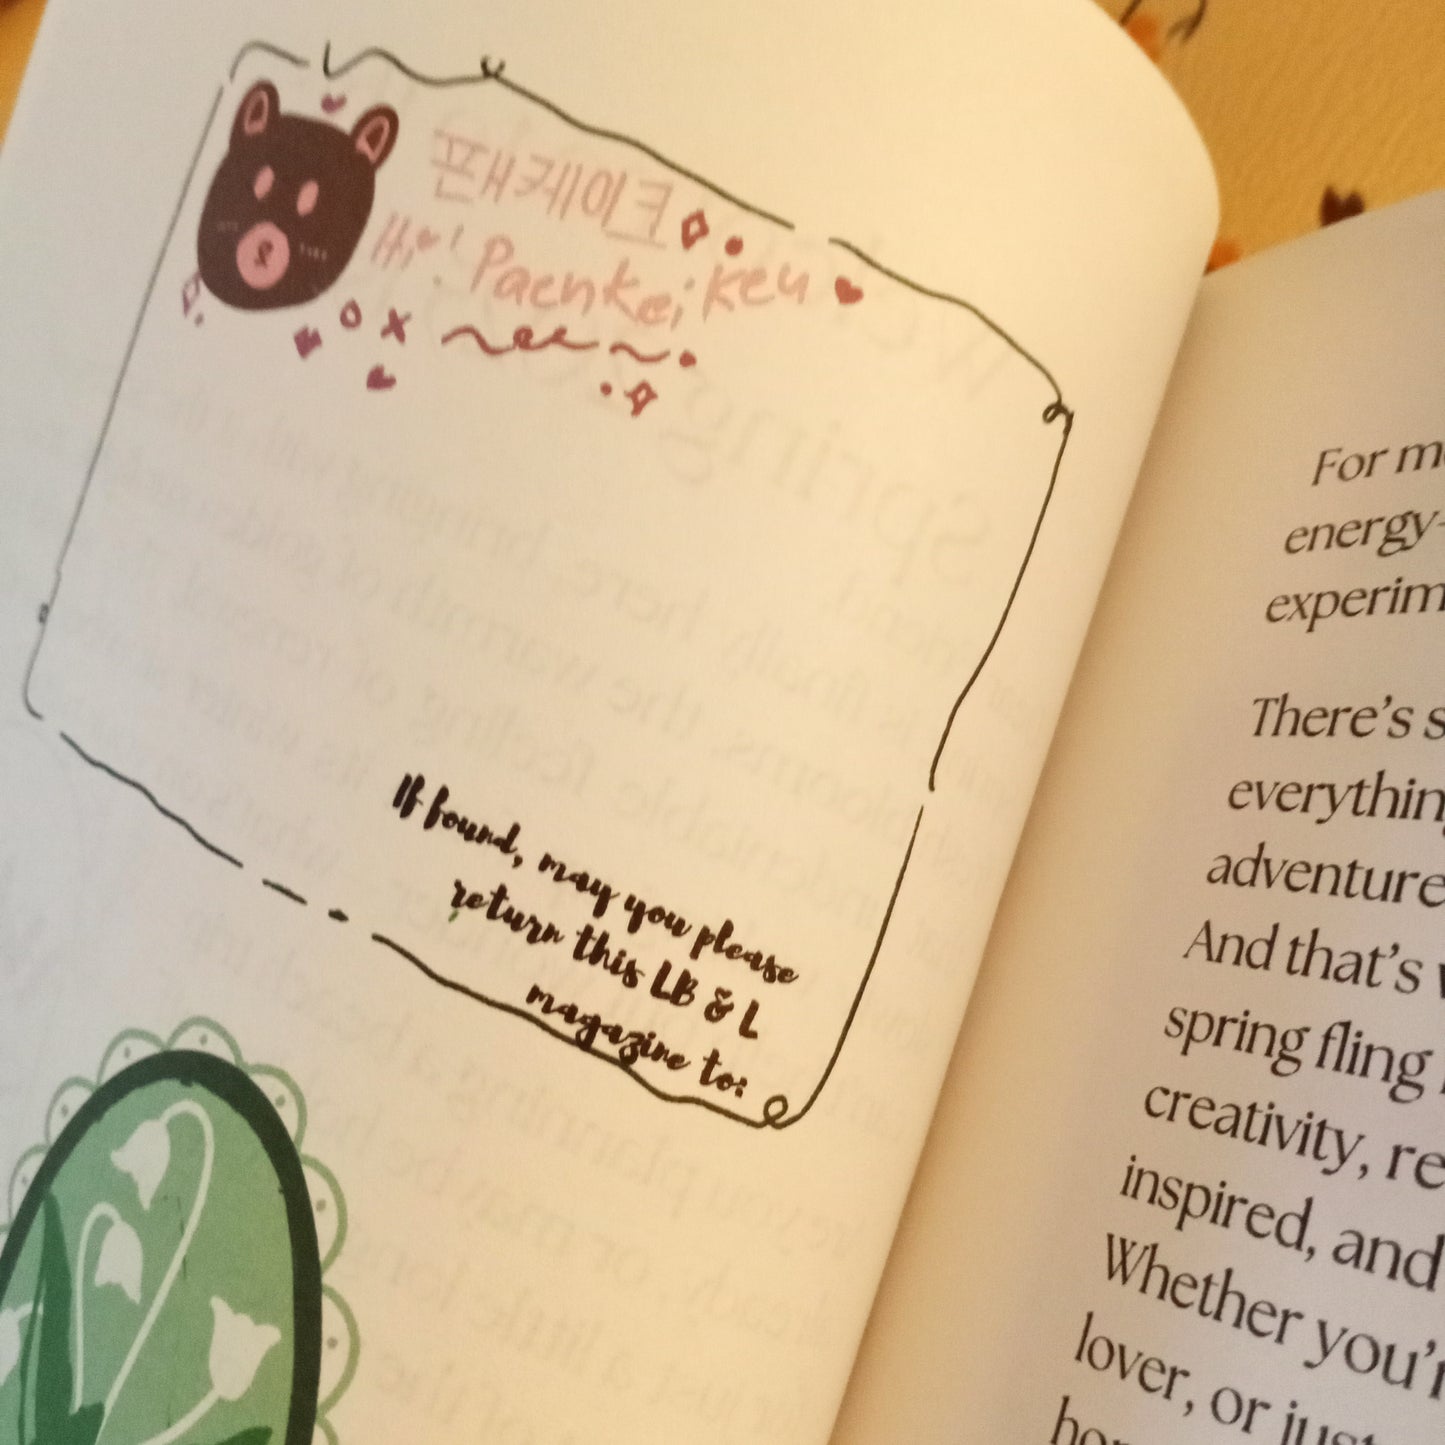 푠내케이크
Hi! Paenkeikeu
If found, may you please
return this LB & L
magazine to:
For
energy-
There's
everything
adventure
And that's
spring fling
creativity,
inspired, and
Whether
lover, or